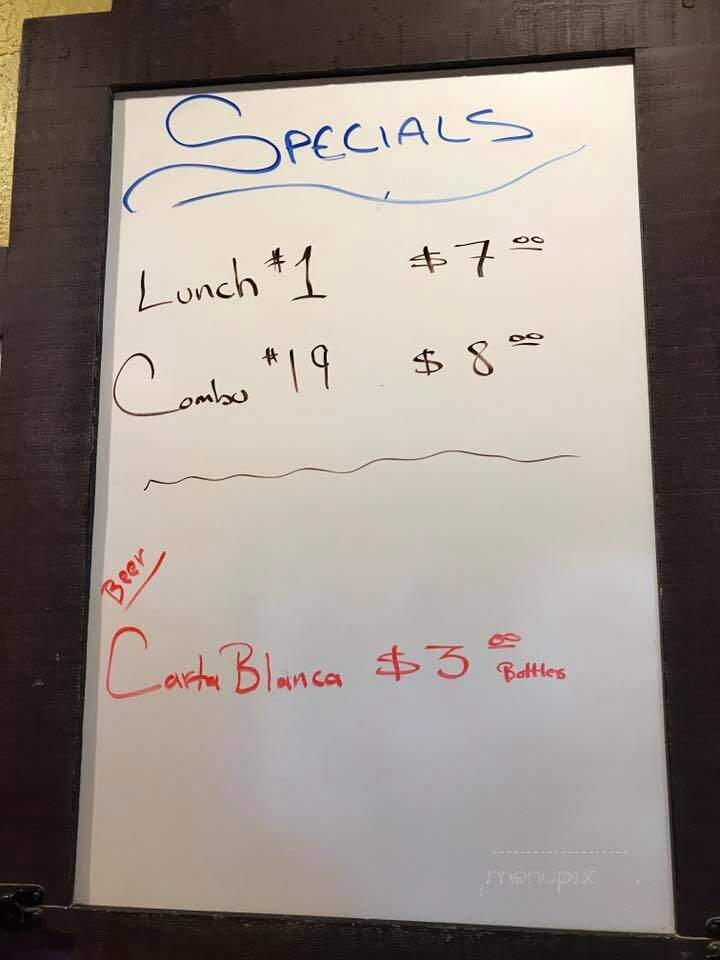 SPECIALS
Lunch #1 $7.00
Combo #19 $8.00
Beer
Carta Blanca $3.00 Bottles
menupix